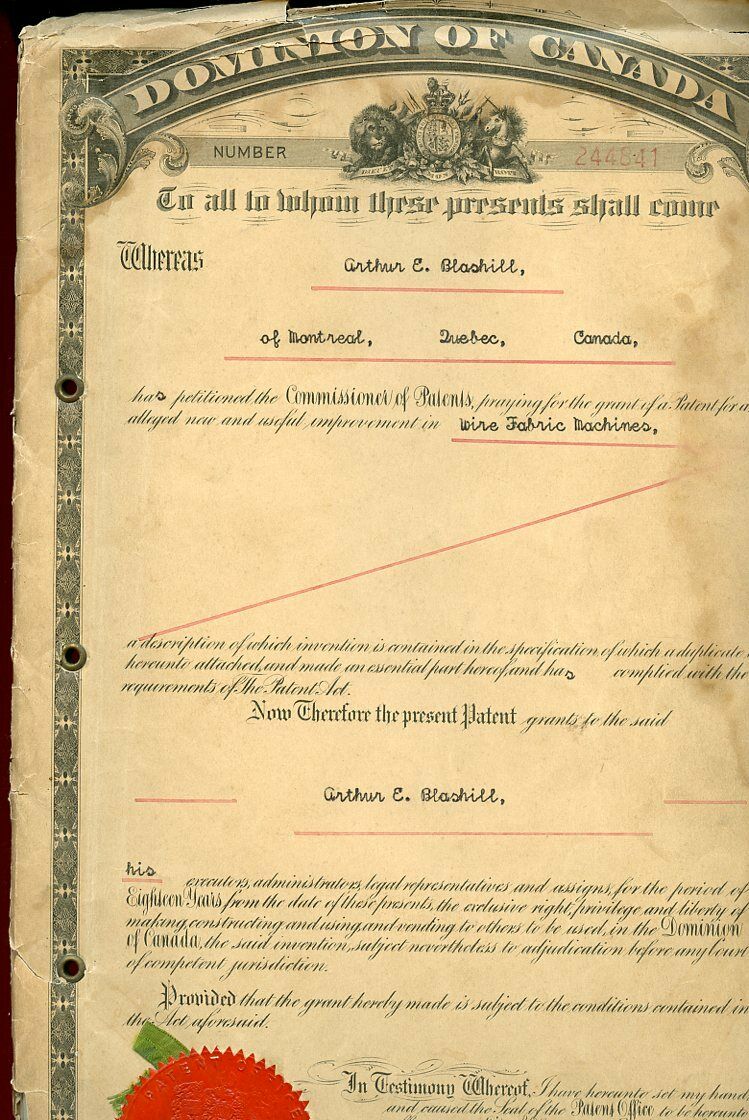 DOMINION OF CANADA
NUMBER 244841
DIEU ET MON DROIT
To all to whom these presents shall come
Whereas Arthur E. Blashill,
of Montreal, Quebec, Canada,
has petitioned the Commissioner of Patents, praying for the grant of a Patent for a
alleged new and useful improvement in Wire Fabric Machines,
a description of which invention is contained in the specification of which a duplicate
hereunto attached, and made an essential part hereof, and has complied with the
requirements of The Patent Act.
Now Therefore the present Patent grants to the said
Arthur E. Blashill,
his executors, administrators, legal representatives and assigns, for the period of
Eighteen Years from the date of these presents, the exclusive right, privilege and liberty of
making, constructing and using, and vending to others to be used, in the Dominion
of Canada, the said invention, subject nevertheless to adjudication before any Court
of competent jurisdiction.
Provided that the grant hereby made is subject to the conditions contained in
the Act aforesaid.
In Testimony Whereof, I have hereunto set my hand
and caused the Seal of the Patent Office to be hereunto
PATENT OF